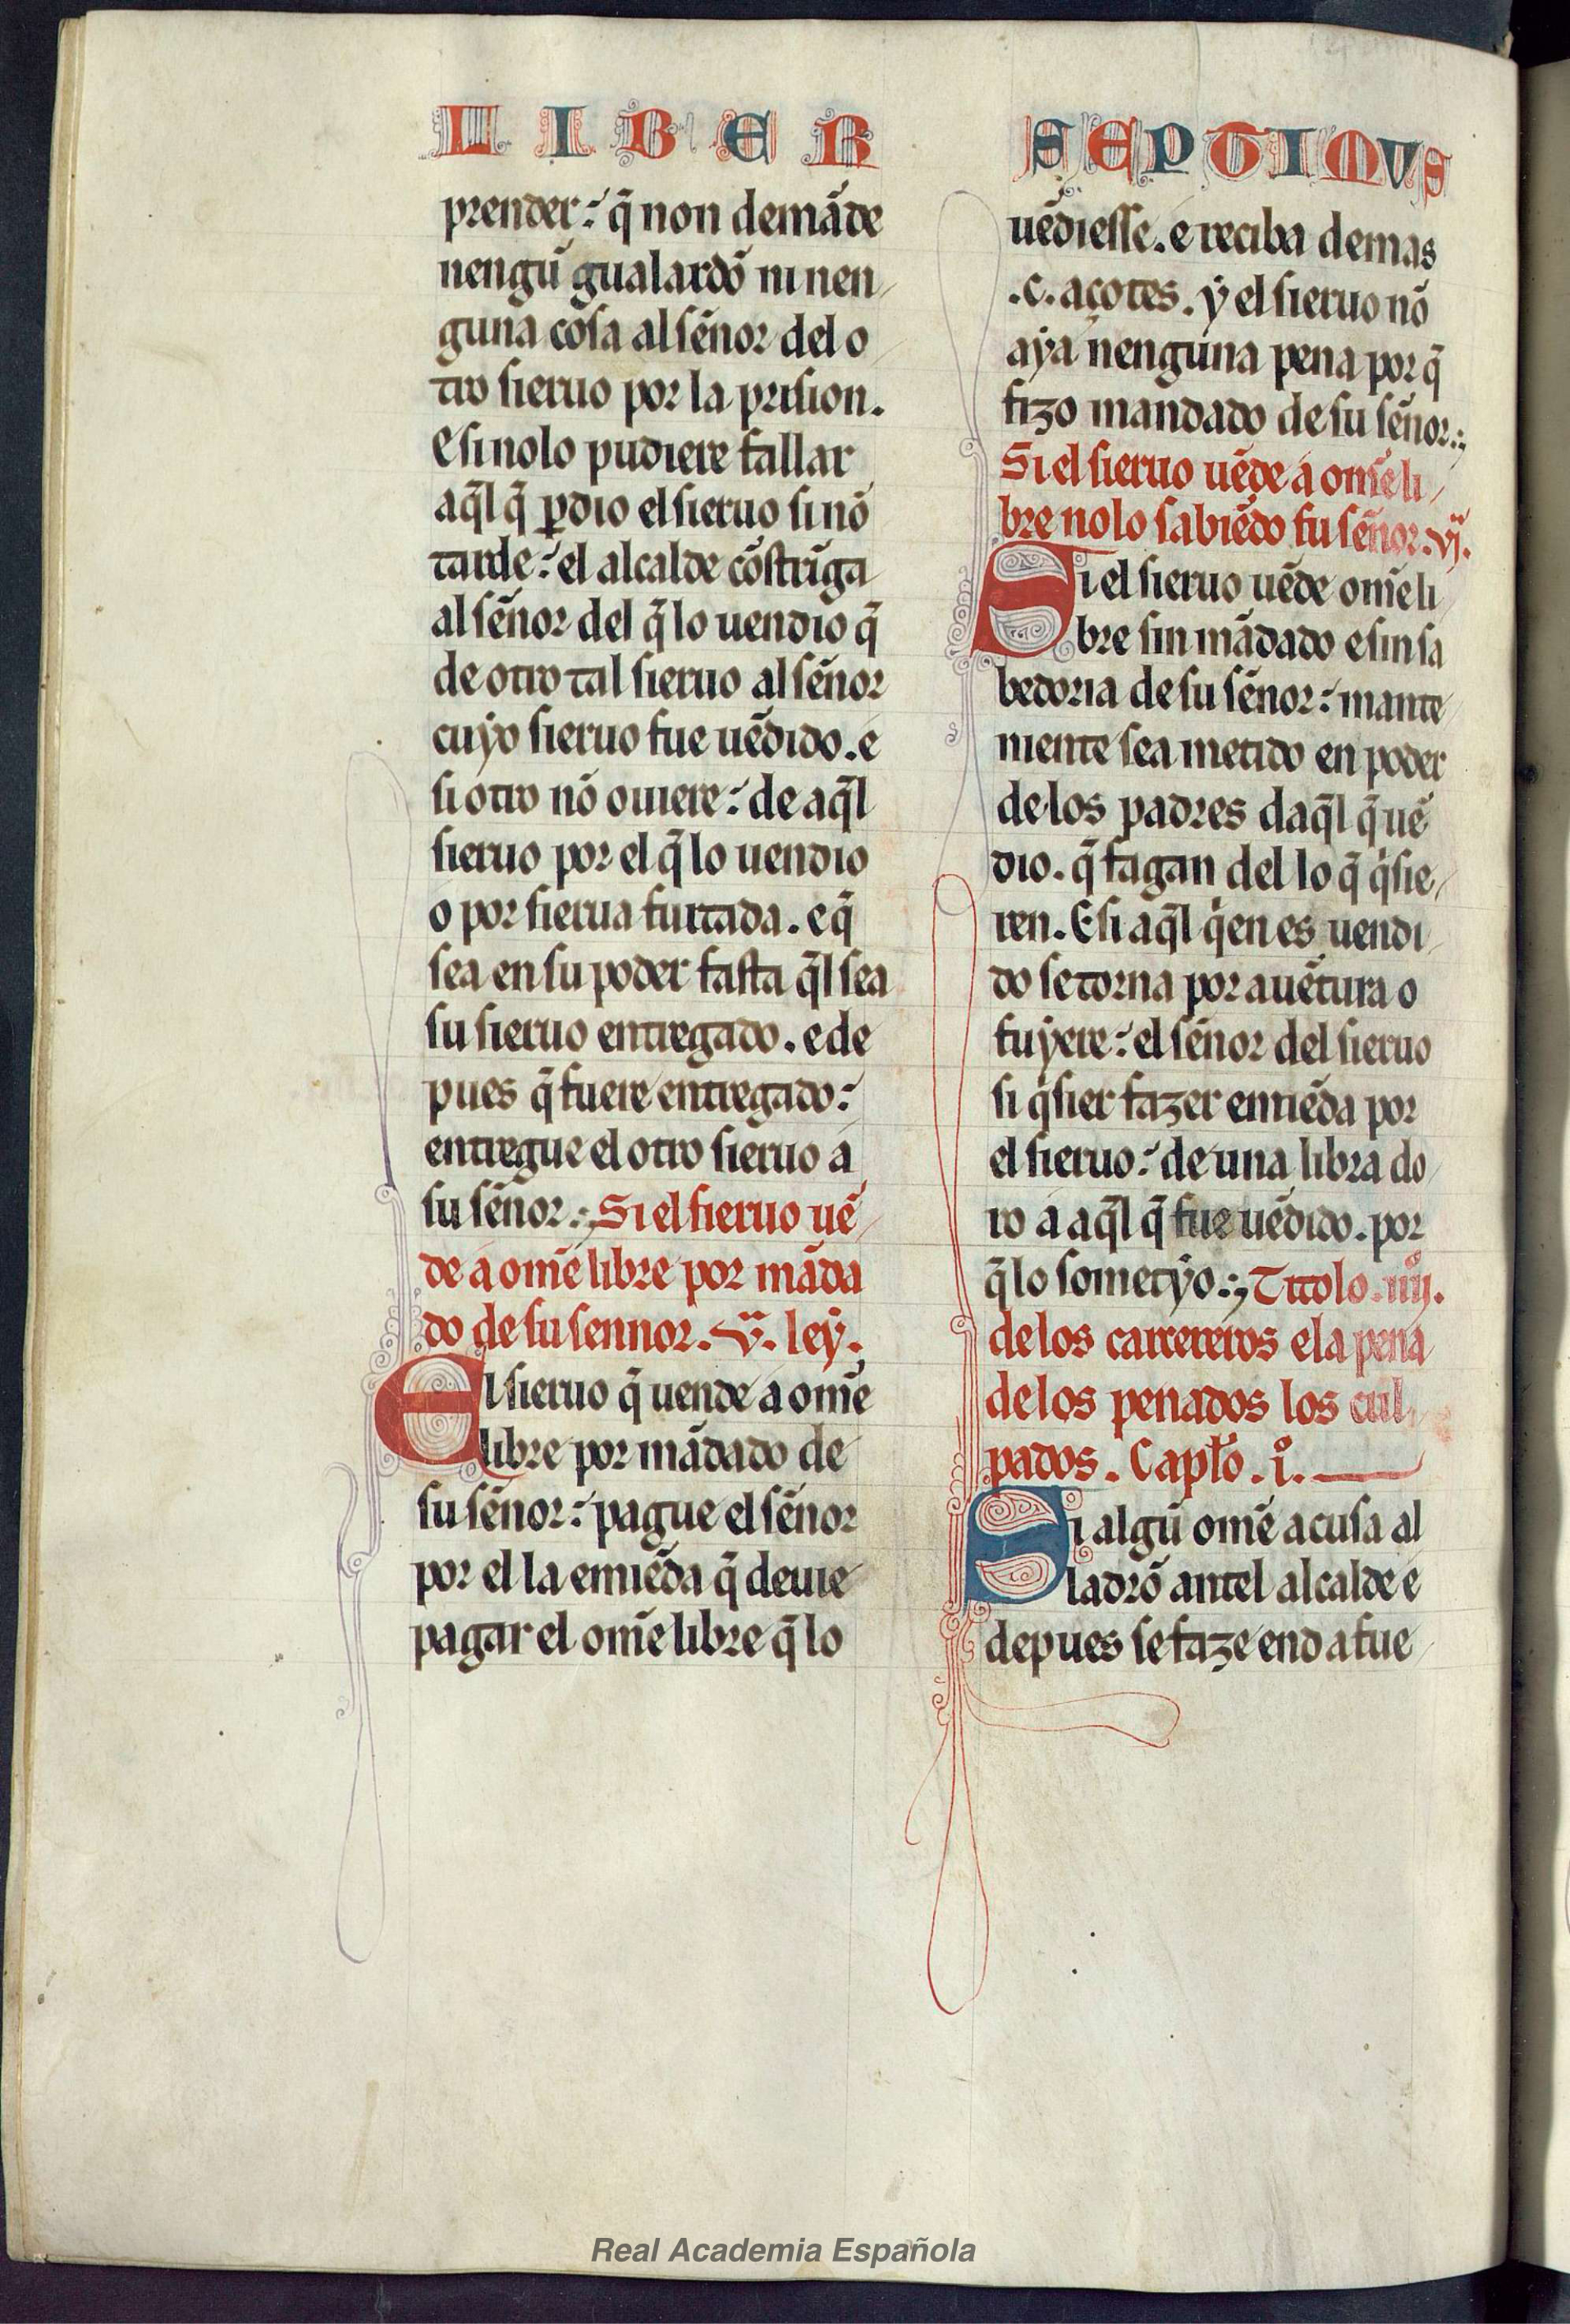 LIBER
prender: q̃ non demãde
nengũ gualardõ ni nen
guna cosa al sẽnor del o
tro sieruo por la prision.
E si nolo pudiere fallar
aq̃l q̃ ꝑdio el sieruo si nõ
tarde: el alcalde cõstrĩga
al sẽnor del q̃ lo uendio q̃
de otro tal sieruo al sẽnor
cuẏo sieruo fue uẽdido. e
si otro nõ ouiere: de aq̃l
sieruo por el q̃ lo uendio
o por sierua furtada. e q̃
sea en su poder fasta q̃l sea
su sieruo entregado. e de
pues q̃ fuere entregado:
entregue el otro sieruo a
su sẽnor.; Si el sieruo uẽ
de a om̃e libre por mãda
do de su sennor. v. leẏ.
El sieruo q̃ uende a om̃e
libre por mãdado de
su sẽnor: pague el sẽnor
por el la emiẽda q̃ deuie
pagar el om̃e libre q̃ lo
SEPTIMVS
uẽdiesse. e reciba demas
.c. açotes. ẏ el sieruo nõ
aẏa nenguna pena por q̃
fizo mandado de su sẽnor.;
Si el sieruo uẽde a om̃e li
bre nolo sabiẽdo su sẽnor. vj.
Si el sieruo uẽde om̃e li
bre sin mãdado e sin sa
bedoria de su sẽnor: mante
niente sea metido en poder
de los padres daq̃l q̃ uẽ
dio. q̃ fagan del lo q̃ qͥsie
ren. E si aq̃l qͥen es uendi
do se torna por auẽtura o
fuẏere: el sẽnor del sieruo
si qͥsier fazer emiẽda por
el sieruo: de una libra do
ro a aq̃l q̃ fue uẽdido. por
q̃ lo sometẏo.; Titolo. iiij.
de los carcereros e la pena
de los penados los cul
pados. Capłо. iͦ.
Si algũ om̃e acusa al
ladrõ antel alcalde e
depues se faze end a fue
Real Academia Española